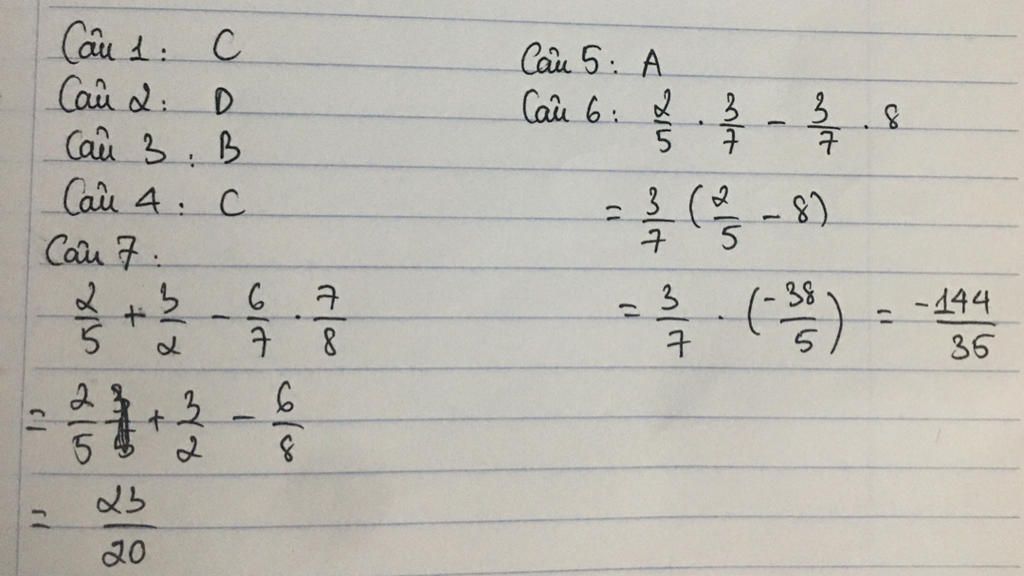 Câu 1: C
Câu 2: D
Câu 3: B
Câu 4: C
Câu 7:
2/5 + 3/2 - 6/7 . 7/8
= 2/5 + 3/2 - 6/8
= 23/20
Câu 5: A
Câu 6: 2/5 . 3/7 - 3/7 . 8
= 3/7 (2/5 - 8)
= 3/7 . (-38/5) = -144/35